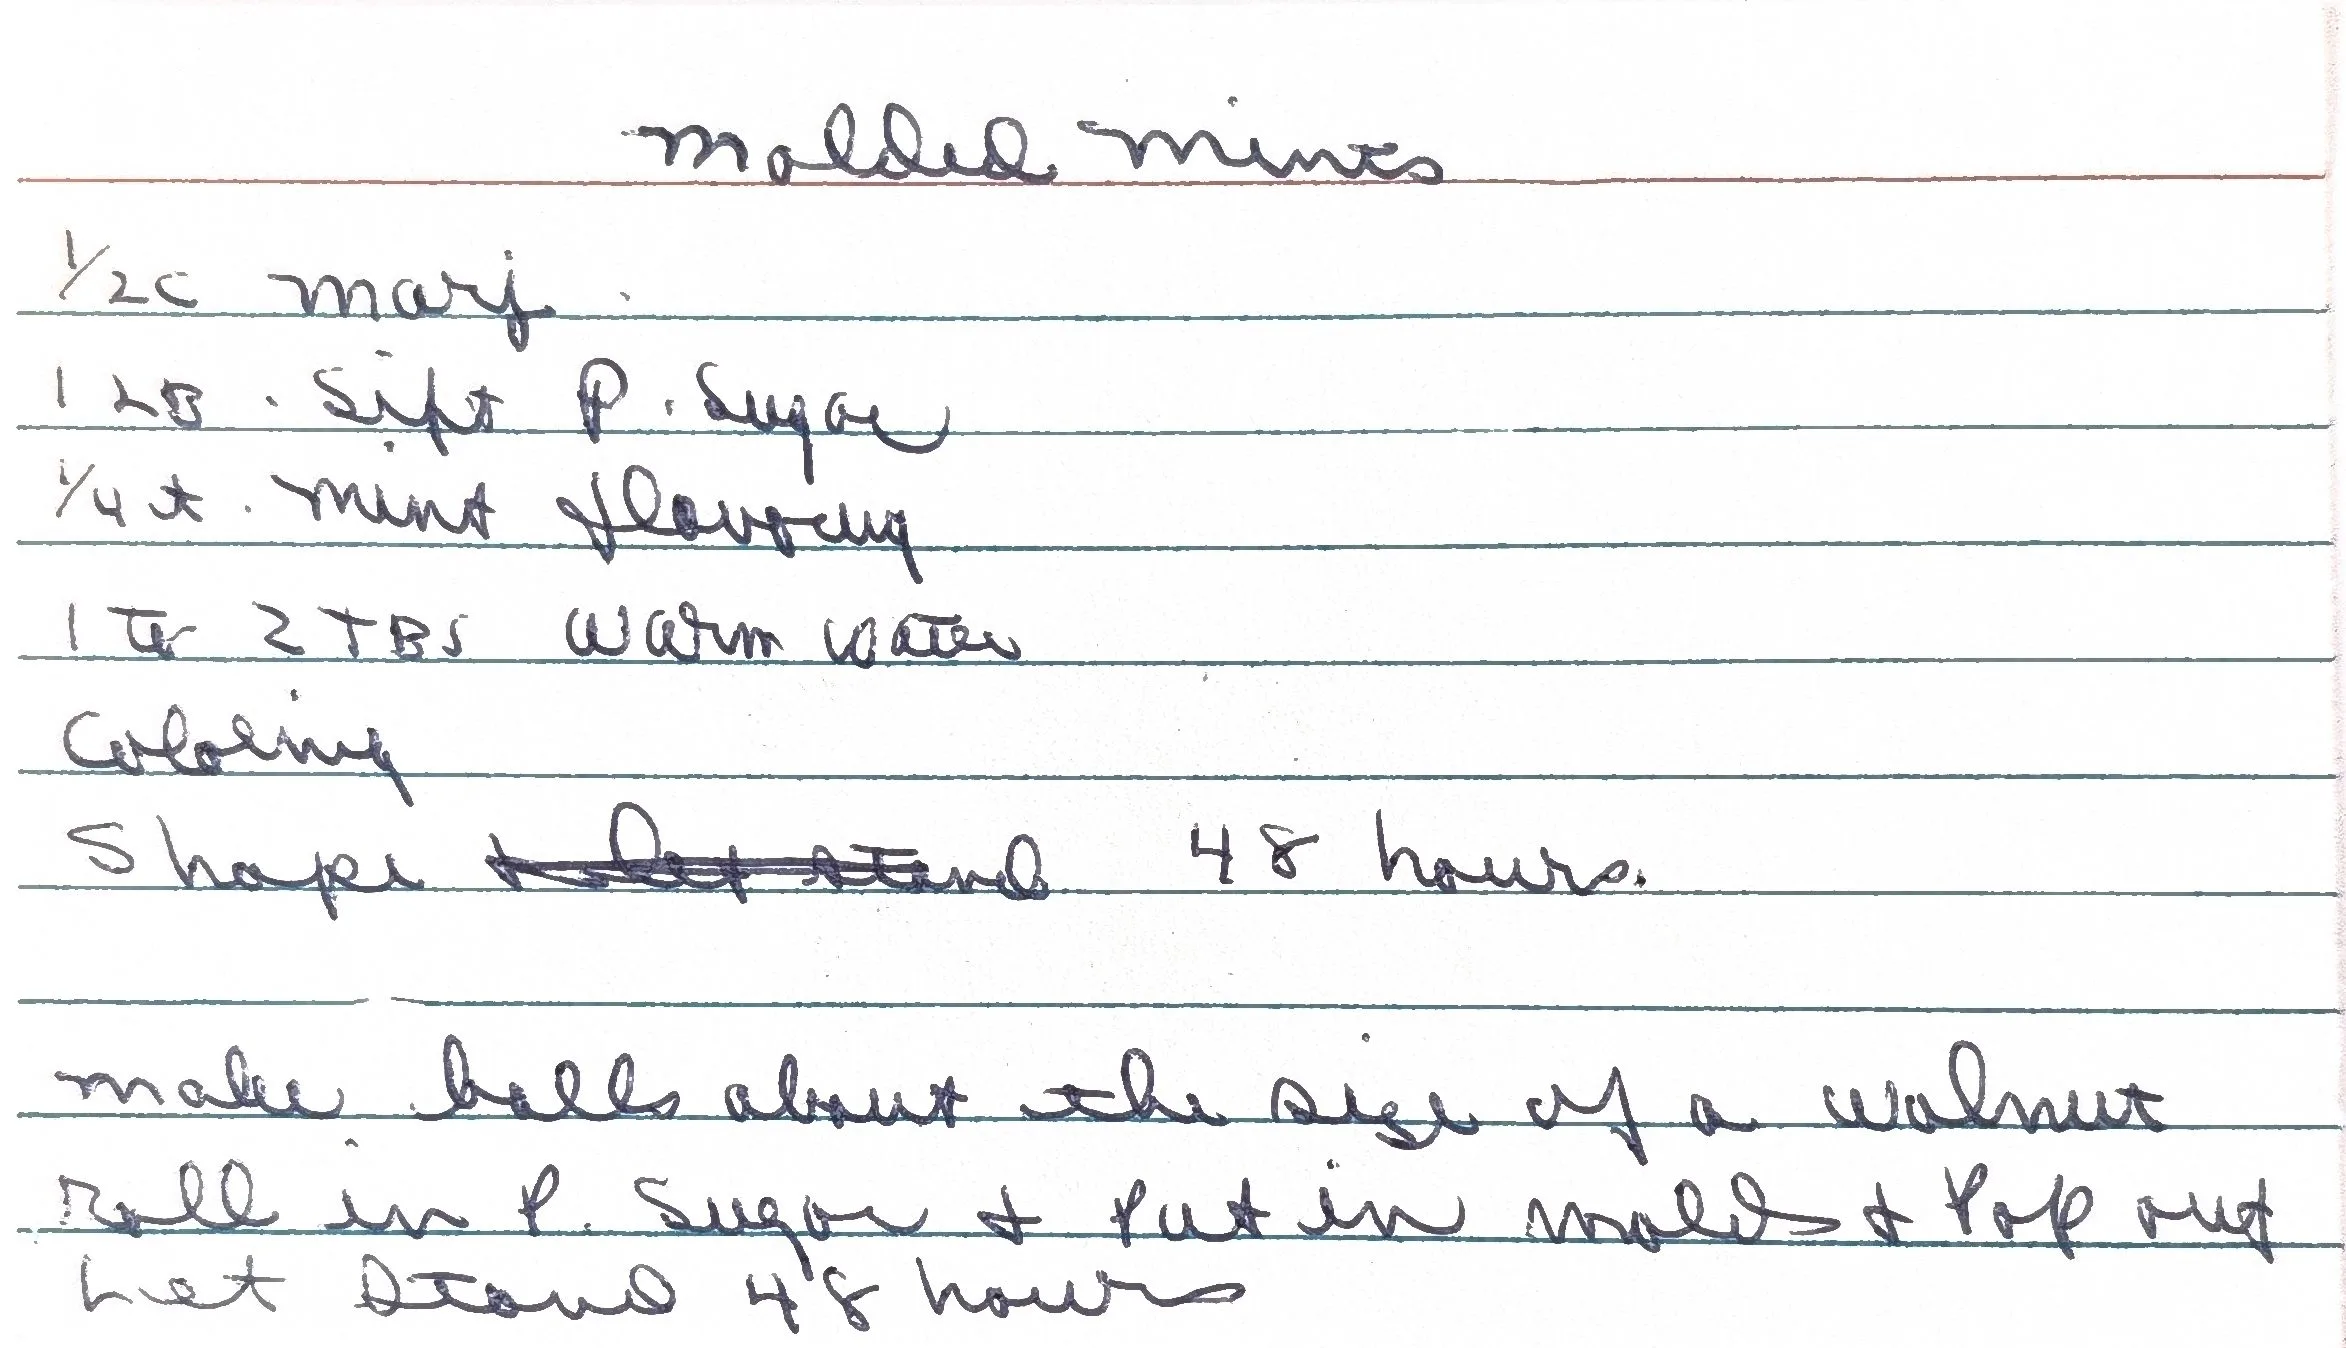 Molded Mints
1/2 c marj.
1 LB. Sift P. Sugar
1/4 t. mint flavoring
1 to 2 TBS warm water
Coloring
Shape & let stand 48 hours.
make balls about the size of a walnut
roll in P. Sugar & put in molds & Pop out
Let Stand 48 hours